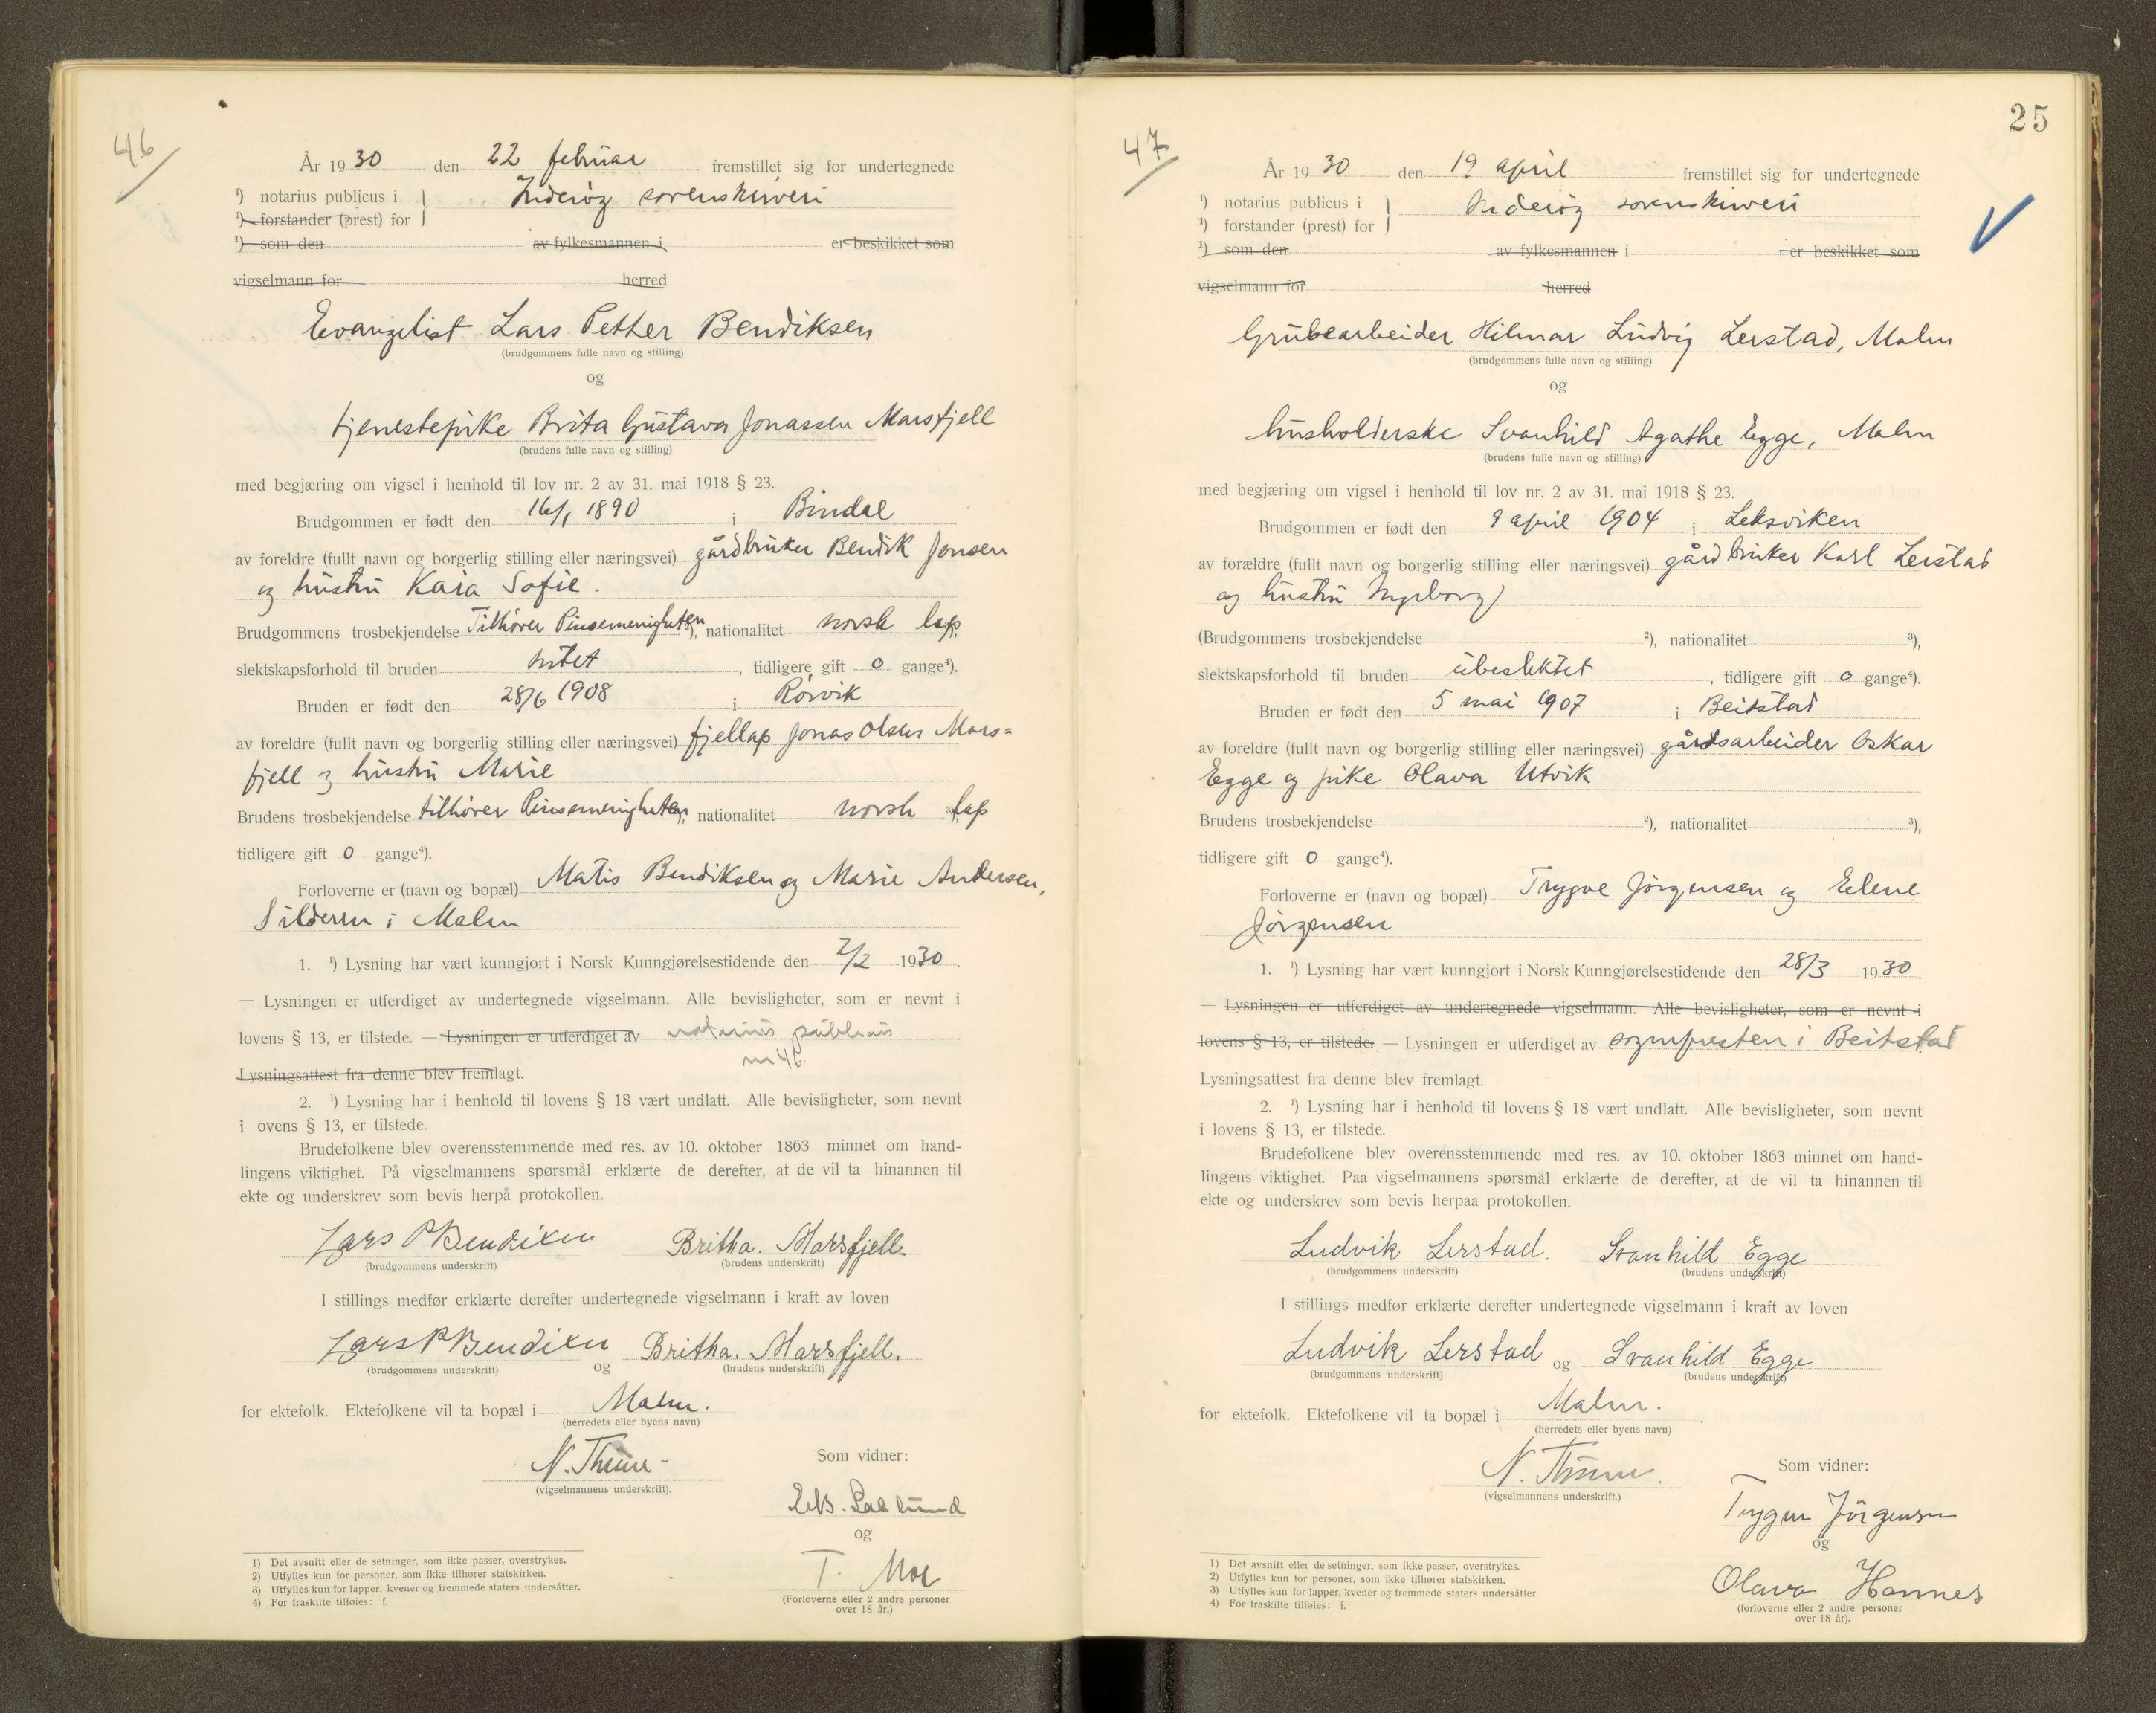 46
År 1930 den 22 februar fremstillet sig for undertegnede
¹) notarius publicus i } Inderøy sorenskriveri
¹) forstander (prest) for
¹) som den av fylkesmannen i er beskikket som
vigselmann for herred
Evangelist Lars Petter Bendiksen
(brudgommens fulle navn og stilling)
og
tjenestepike Brita Gustava Jonassen Marsfjell
(brudens fulle navn og stilling)
med begjæring om vigsel i henhold til lov nr. 2 av 31. mai 1918 § 23.
Brudgommen er født den 16/1 1890 i Bindal
av foreldre (fullt navn og borgerlig stilling eller næringsvei) gårdbruker Bendik Jonsen
og hustru Kaia Sofie.
Brudgommens trosbekjendelse Tilhører Pinsemenigheten ²), nationalitet norsk lap
slektskapsforhold til bruden intet, tidligere gift 0 gange⁴).
Bruden er født den 28/6 1908 i Rörvik
av foreldre (fullt navn og borgerlig stilling eller næringsvei) fjellap Jonas Olsen Mars=
fjell og hustru Marie
Brudens trosbekjendelse tilhører Pinsemenigheten ²), nationalitet norsk lap
tidligere gift 0 gange⁴).
Forloverne er (navn og bopæl) Matis Bendiksen og Marie Andersen,
Silderen i Malm
1. ¹) Lysning har vært kunngjort i Norsk Kunngjørelsestidende den 7/2 1930.
— Lysningen er utferdiget av undertegnede vigselmann. Alle bevisligheter, som er nevnt i
lovens § 13, er tilstede. — Lysningen er utferdiget av notarius publicus
nr 46.
Lysningsattest fra denne blev fremlagt.
2. ¹) Lysning har i henhold til lovens § 18 vært undlatt. Alle bevisligheter, som nevnt
i ovens § 13, er tilstede.
Brudefolkene blev overensstemmende med res. av 10. oktober 1863 minnet om hand-
lingens viktighet. På vigselmannens spørsmål erklærte de derefter, at de vil ta hinannen til
ekte og underskrev som bevis herpå protokollen.
Lars P Bendixen Britha. Marsfjell.
(brudgommens underskrift) (brudens underskrift)
I stillings medfør erklærte derefter undertegnede vigselmann i kraft av loven
Lars P Bendixen og Britha. Marsfjell.
(brudgommens underskrift) (brudens underskrift)
for ektefolk. Ektefolkene vil ta bopæl i Malm.
(herredets eller byens navn)
N. Thune
(vigselmannens underskrift).
Som vidner:
og
T. Moe
(Forloverne eller 2 andre personer
over 18 år.)
1) Det avsnitt eller de setninger, som ikke passer, overstrykes.
2) Utfylles kun for personer, som ikke tilhører statskirken.
3) Utfylles kun for lapper, kvener og fremmede staters undersåtter.
4) For fraskilte tilføies: f.
25
47
År 1930 den 19 april fremstillet sig for undertegnede
¹) notarius publicus i } Inderøy sorenskriveri
¹) forstander (prest) for
¹) som den av fylkesmannen i er beskikket som
vigselmann for herred
Grubearbeider Hilmar Ludvig Lerstad, Malm
(brudgommens fulle navn og stilling)
og
husholderske Svanhild Agathe Egge, Malm
(brudens fulle navn og stilling)
med begjæring om vigsel i henhold til lov nr. 2 av 31. mai 1918 § 23.
Brudgommen er født den 9 april 1904 i Leksviken
av forældre (fullt navn og borgerlig stilling eller næringsvei) gårdbruker Karl Lerstad
og hustru Ingeborg
(Brudgommens trosbekjendelse ²), nationalitet ³),
slektskapsforhold til bruden ubeslektet, tidligere gift 0 gange⁴).
Bruden er født den 5 mai 1907 i Beitstad
av foreldre (fullt navn og borgerlig stilling eller næringsvei) gårdsarbeider Oskar
Egge og pike Olava Utvik
Brudens trosbekjendelse ²), nationalitet ³),
tidligere gift 0 gange⁴).
Forloverne er (navn og bopæl) Trygve Jörgensen og Elene
Jörgensen
1. ¹) Lysning har vært kunngjort i Norsk Kunngjørelsestidende den 28/3 1930.
— Lysningen er utferdiget av undertegnede vigselmann. Alle bevisligheter, som er nevnt i
lovens § 13, er tilstede. — Lysningen er utferdiget av sognepresten i Beitstad
Lysningsattest fra denne blev fremlagt.
2. ¹) Lysning har i henhold til lovens § 18 vært undlatt. Alle bevisligheter, som nevnt
i lovens § 13, er tilstede.
Brudefolkene blev overensstemmende med res. av 10. oktober 1863 minnet om hand-
lingens viktighet. Paa vigselmannens spørsmål erklærte de derefter, at de vil ta hinannen til
ekte og underskrev som bevis herpaa protokollen.
Ludvik Lerstad. Svanhild Egge
(brudgommens underskrift) (brudens underskrift)
I stillings medfør erklærte derefter undertegnede vigselmann i kraft av loven
Ludvik Lerstad og Svanhild Egge
(brudgommens underskrift) (brudens underskrift)
for ektefolk. Ektefolkene vil ta bopæl i Malm.
(herredets eller byens navn)
N. Thune.
(vigselmannens underskrift.)
Som vidner:
Trygve Jörgensen
og
Olava Hannes
(forloverne eller 2 andre personer
over 18 år).
1) Det avsnitt eller de setninger, som ikke passer, overstrykes.
2) Utfylles kun for personer, som ikke tilhører statskirken.
3) Utfylles kun for lapper, kvener og fremmede staters undersåtter
4) For fraskilte tilføies: f.